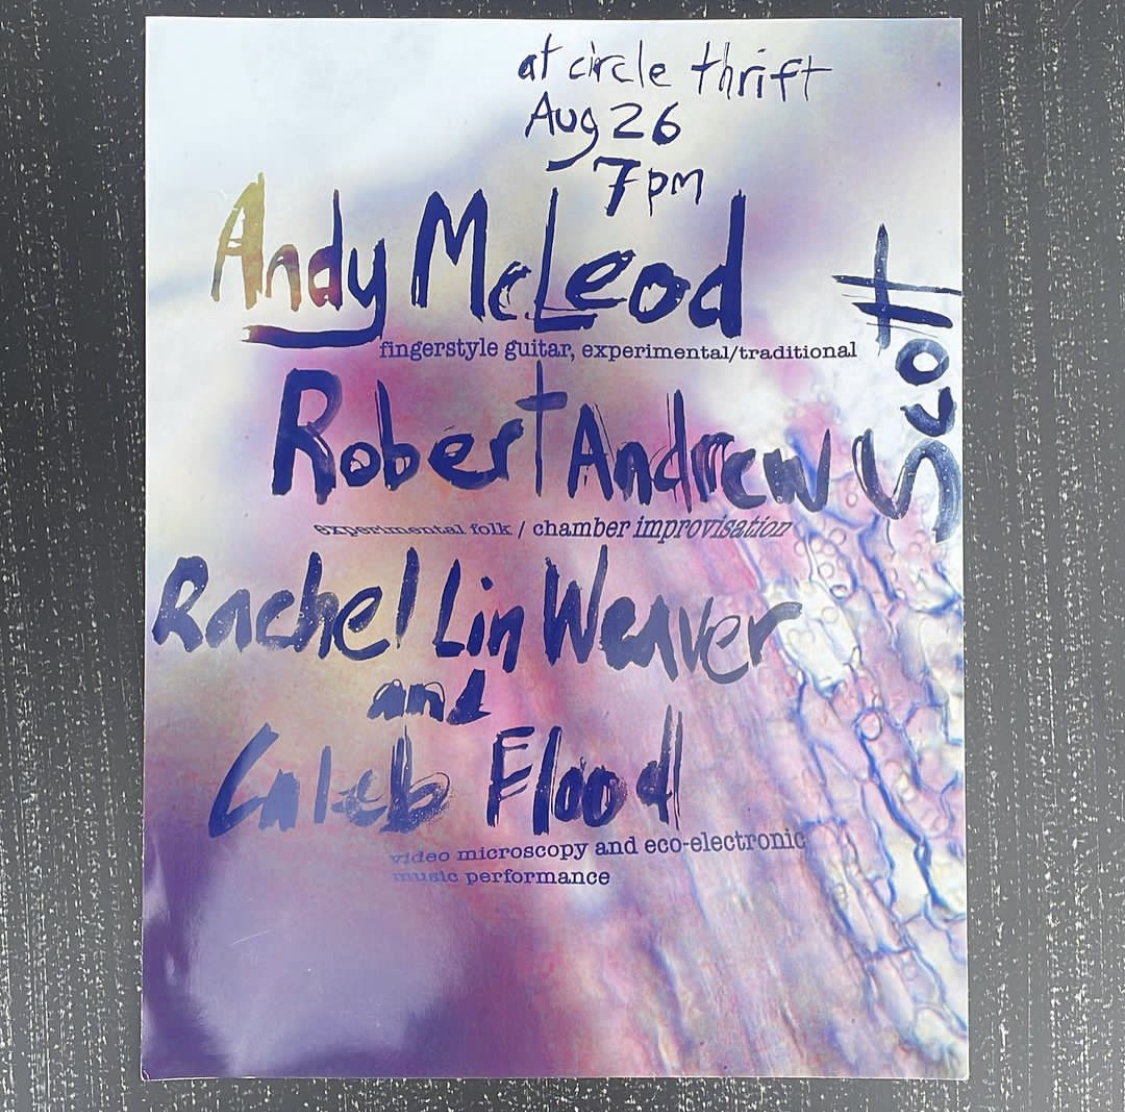 at circle thrift
Aug 26
7pm
Andy McLeod
fingerstyle guitar, experimental/traditional
Robert Andrew Scott
experimental folk / chamber improvisation
Rachel Lin Weaver
and
Caleb Flood
video microscopy and eco-electronic
music performance